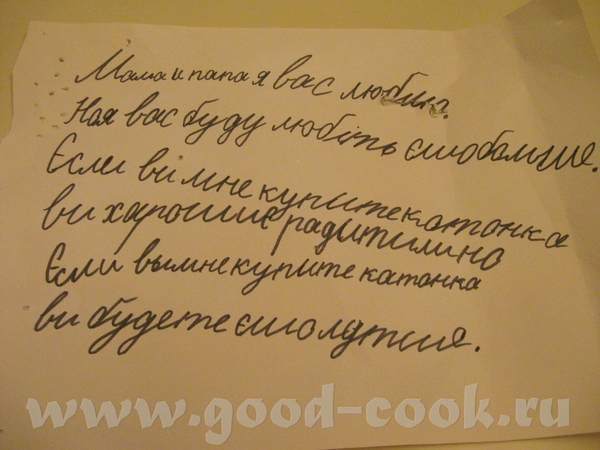 Мама и папа я вас люблю.
Но я вас буду любіть єшо больше.
Єсли ви мне купите катонка
ви харошие радитили но
Єсли вы мне купите катонка
ви будете єшо лутшие.
www.good-cook.ru